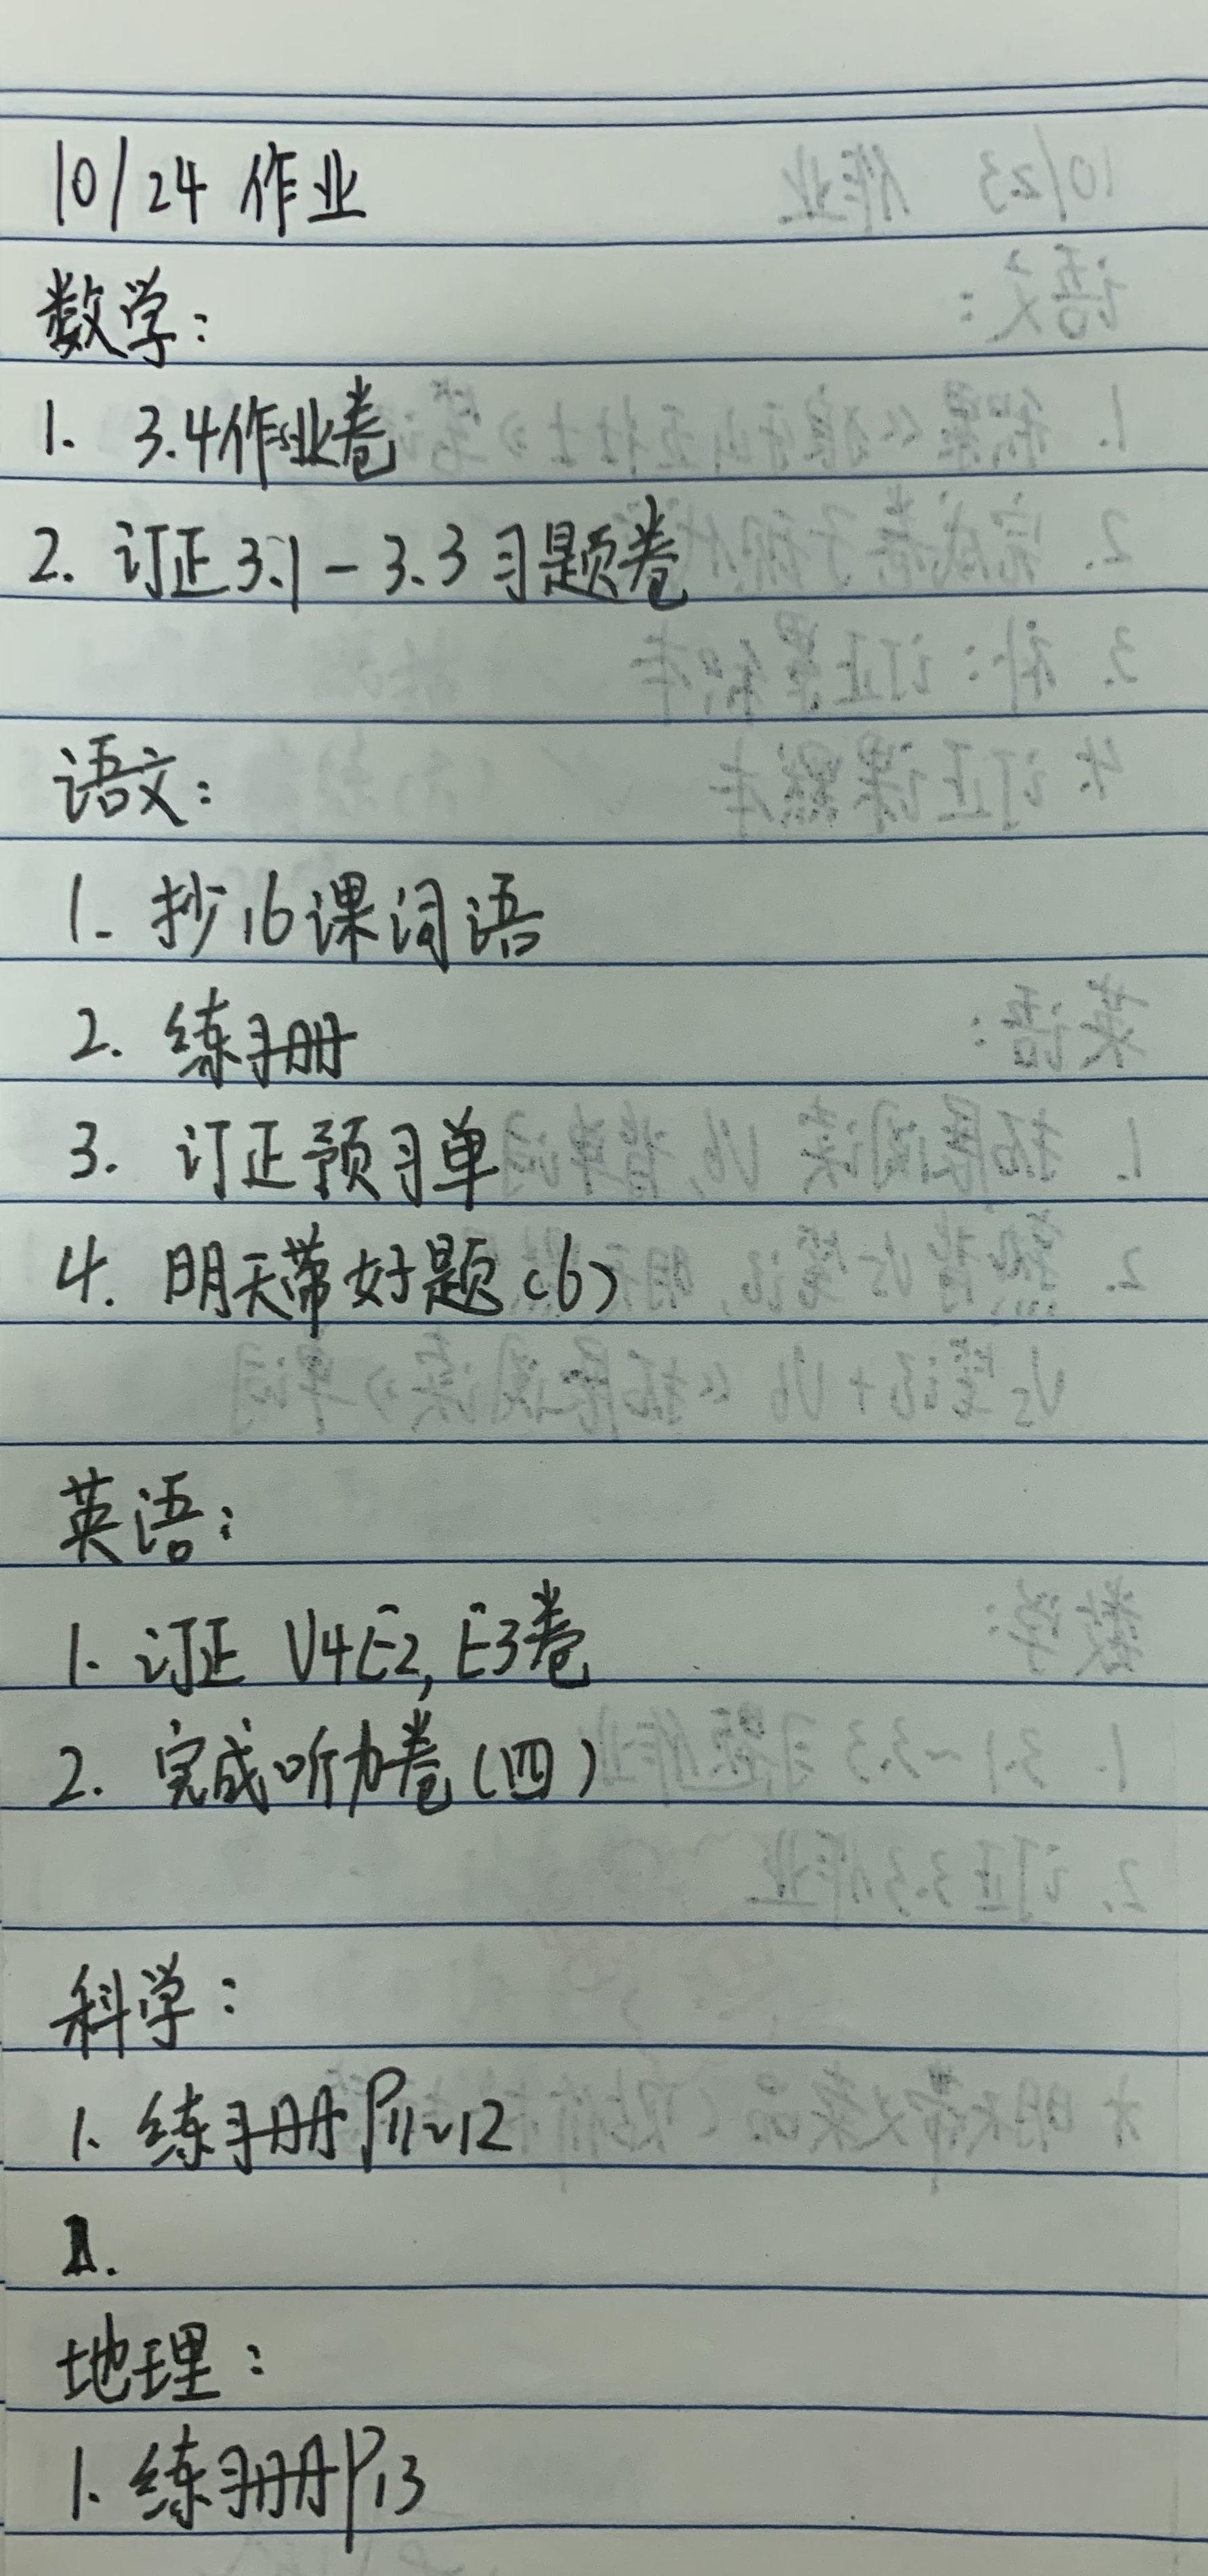 10/24 作业
数学：
1. 3.4作业卷
2. 订正3.1-3.3习题卷
语文：
1. 抄16课词语
2. 练习册
3. 订正预习单
4. 明天带好题(6)
英语：
1. 订正 U4E2, E3卷
2. 完成听力卷(四)
科学：
1. 练习册P11~12
地理：
1. 练习册P13